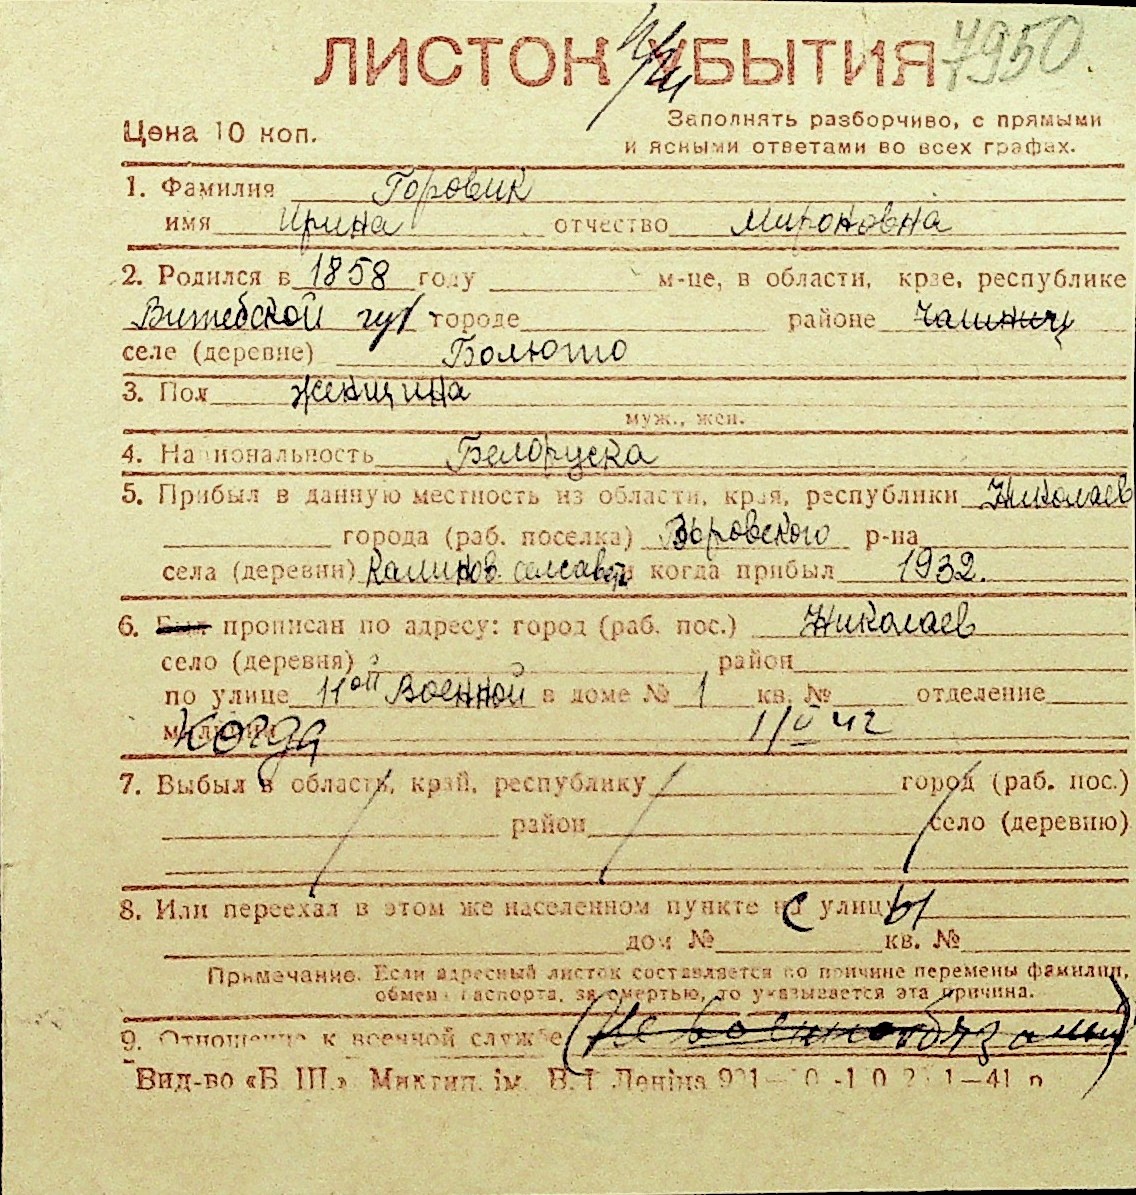 ЛИСТОК УБЫТИЯ 7950.
Цена 10 коп.
Заполнять разборчиво, с прямыми
и ясными ответами во всех графах.
1. Фамилия Горовик
имя Ирина отчество Мироновна
2. Родился в 1858 году м-це, в области, крае, республике
Витебской губ городе районе Чашничц
селе (деревне) Болюто
3. Пол женщина
муж., жен.
4. Национальность Белоруска
5. Прибыл в данную местность из области, края, республики Николаев
города (раб. поселка) Воровского р-на
села (деревни) Калинов. сельсавет и когда прибыл 1932.
6. Был прописан по адресу: город (раб. пос.) Николаев
село (деревня) район
по улице 11ой Военной в доме № 1 кв. № отделение
милиции когда 1/V 42
7. Выбыл в область, край, республику город (раб. пос.)
район село (деревню)
8. Или переехал в этом же населенном пункте с улицы
дом № кв. №
Примечание. Если адресный листок составляется по причине перемены фамилии,
обмена паспорта, за смертью, то указывается эта причина.
9. Отношение к военной службе (Не военнообязаный)
Вид-во «Б. Ш.» Микгип. ім. В. І. Леніна